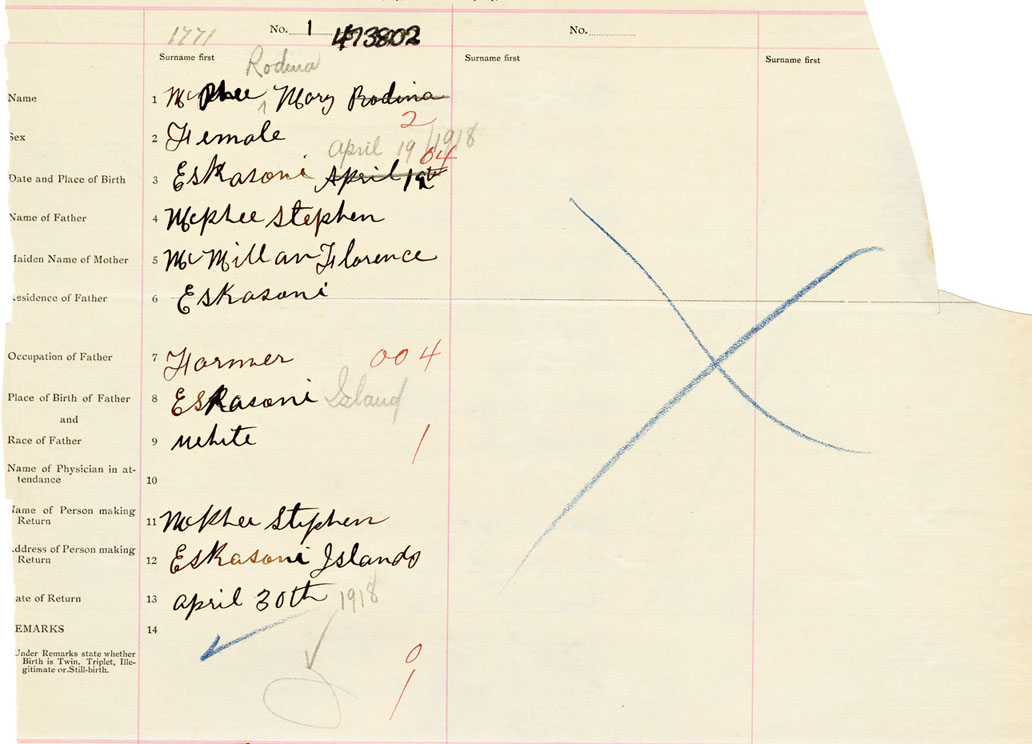 1771 No. 1 473802 No.
Surname first Surname first Surname first
Rodena
Name 1 McPhee Mary Rodina
2
Sex 2 Female
April 19/1918
04
Date and Place of Birth 3 Eskasoni April 19th
Name of Father 4 McPhee Stephen
Maiden Name of Mother 5 McMillan Florence
Residence of Father 6 Eskasoni
Occupation of Father 7 Farmer 004
Place of Birth of Father 8 Eskasoni Island
and
Race of Father 9 White 1
Name of Physician in at-
tendance 10
Name of Person making
Return 11 McPhee Stephen
Address of Person making
Return 12 Eskasoni Islands
ate of Return 13 April 30th 1918
EMARKS 14
Under Remarks state whether
Birth is Twin, Triplet, Ille-
gitimate or Still-birth.
0
1